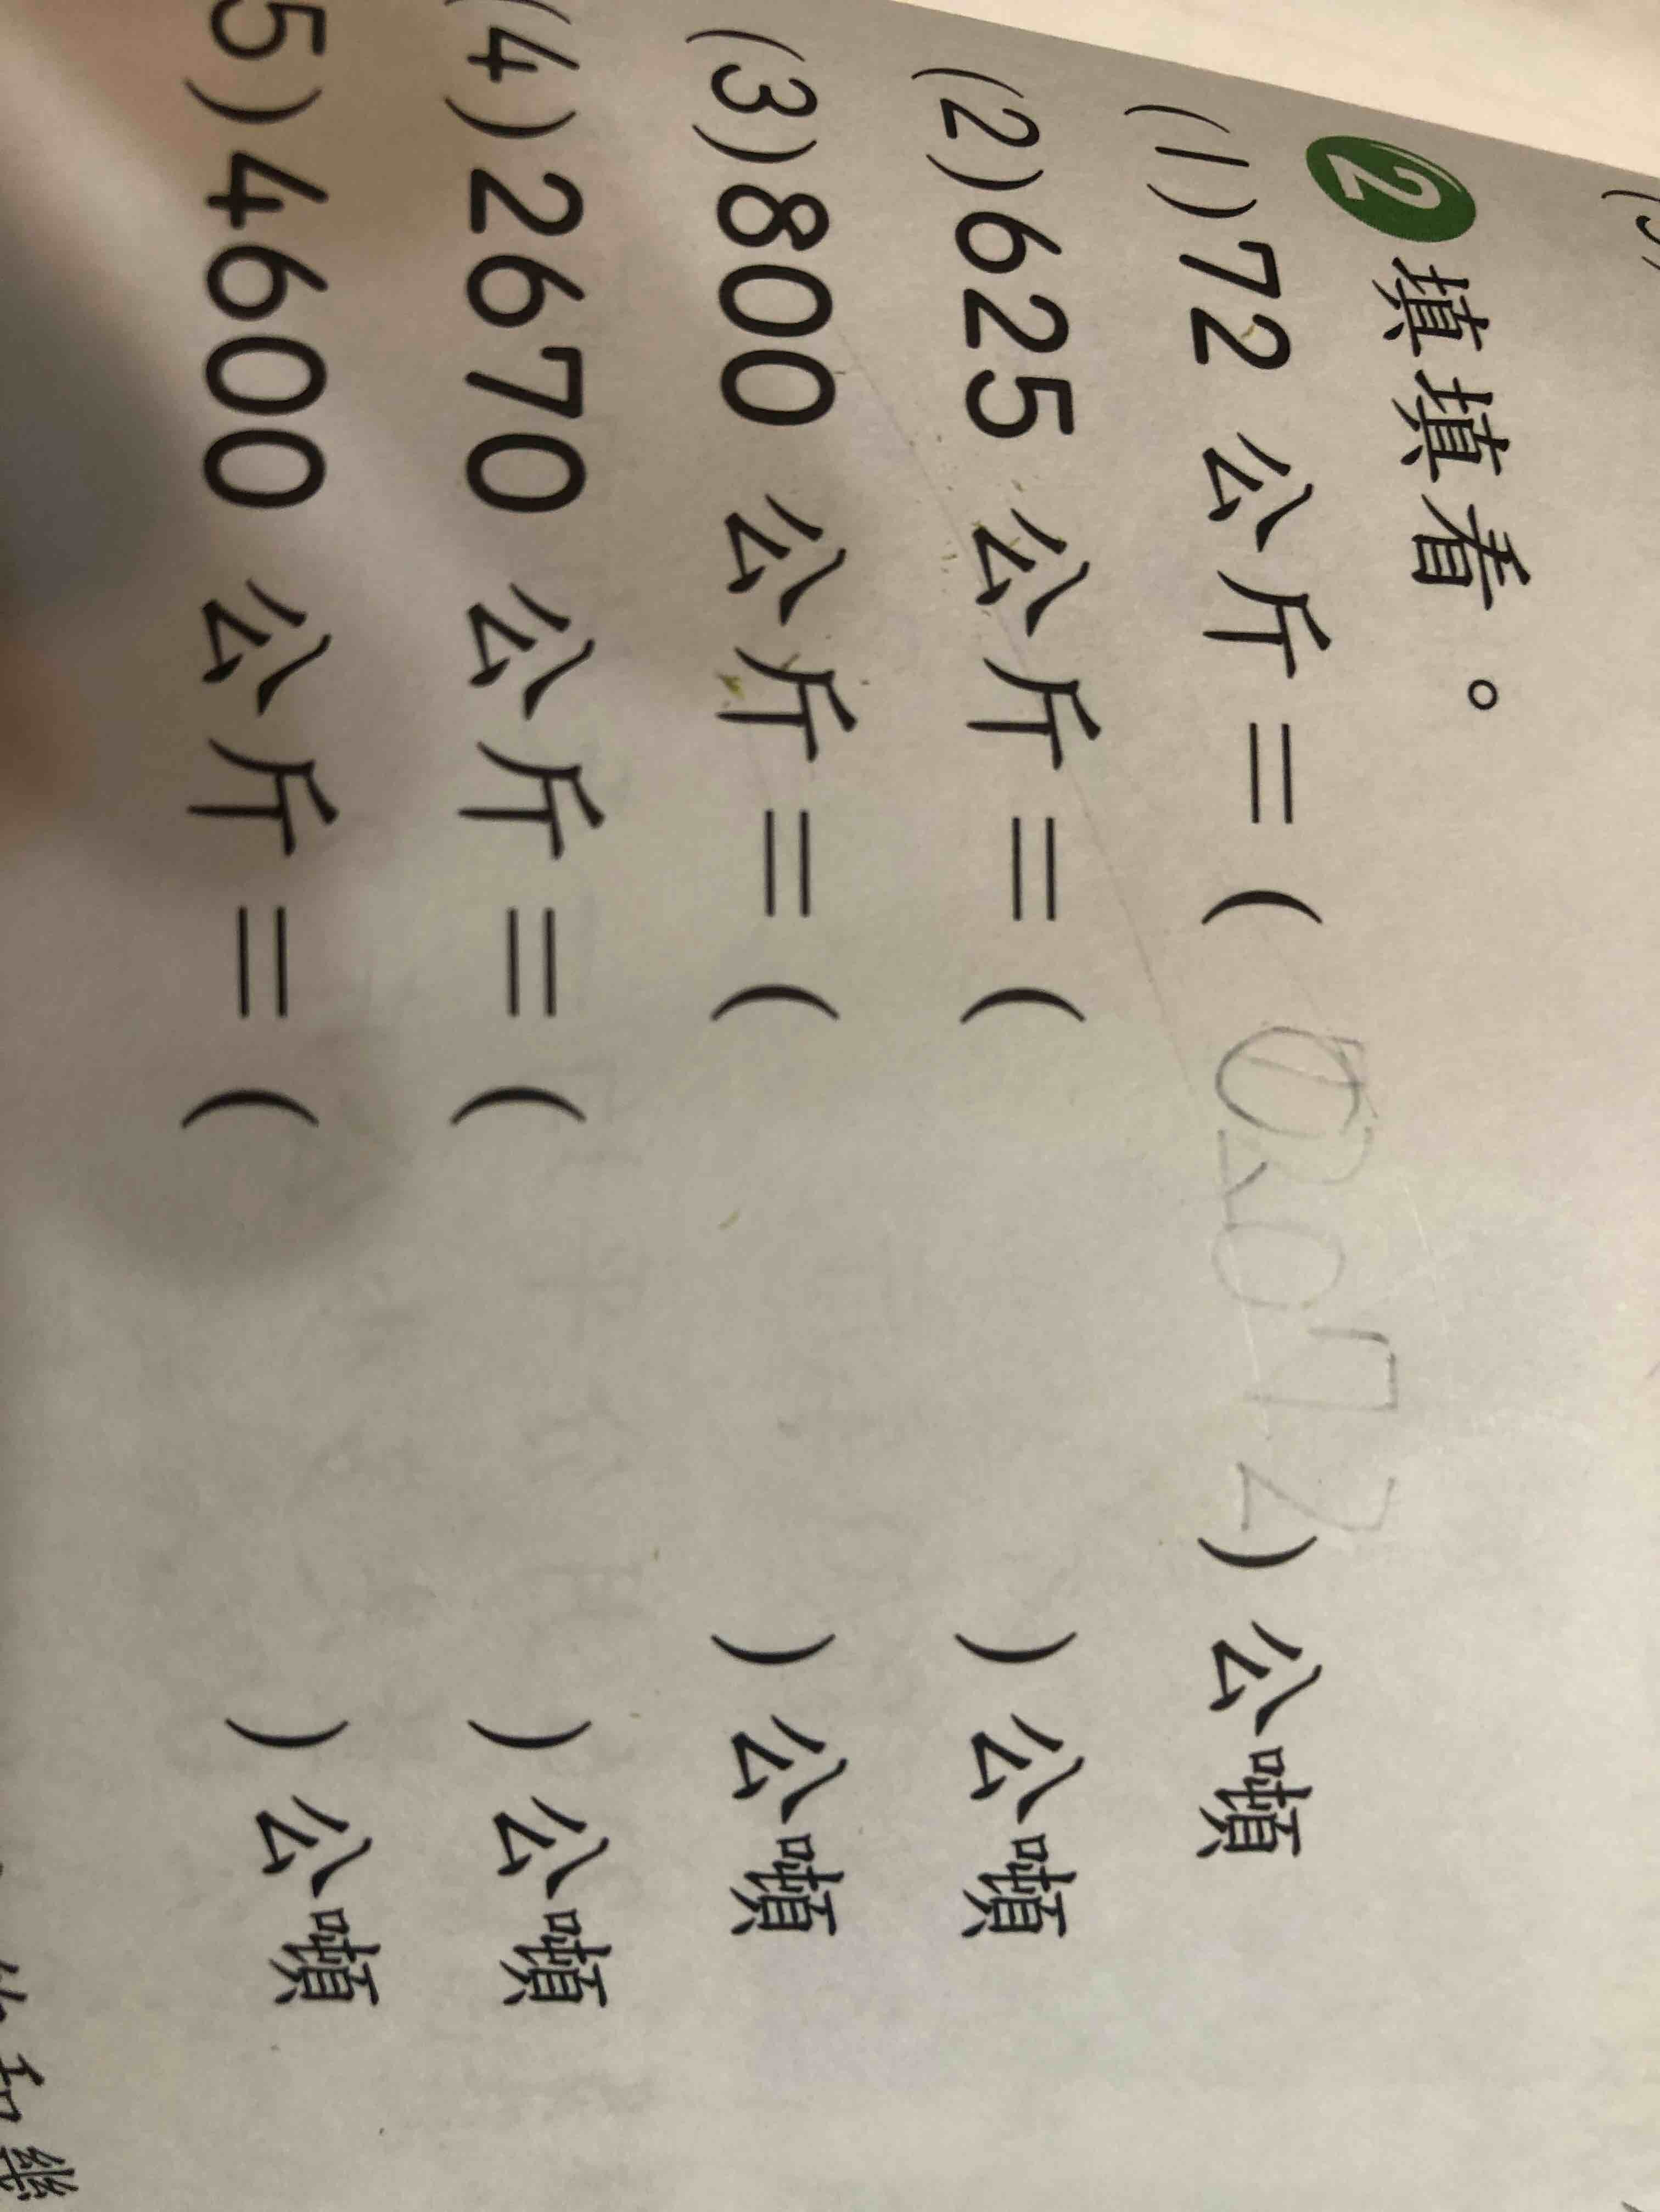 2 填填看。
(1)72 公斤=( 0.072)公噸
(2)625 公斤=( )公噸
(3)800 公斤=( )公噸
(4)2670 公斤=( )公噸
5)4600 公斤=( )公噸